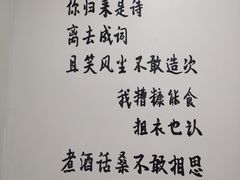 你归来是诗
离去成词
且笑风尘不敢造次
我糟糠能食
粗衣也认
煮酒话桑不敢相思